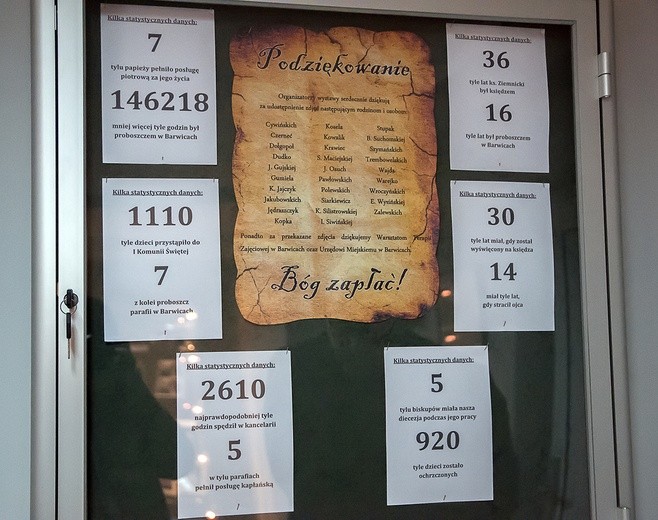 Kilka statystycznych danych:
7
tylu papieży pełniło posługę
piotrową za jego życia
146218
mniej więcej tyle godzin był
proboszczem w Barwicach
Kilka statystycznych danych:
1110
tyle dzieci przystąpiło do
I Komunii Świętej
7
z kolei proboszcz
parafii w Barwicach
Kilka statystycznych danych:
2610
najprawdopodobniej tyle
godzin spędził w kancelarii
5
w tylu parafiach
pełnił posługę kapłańską
Podziękowanie
Organizatorzy wystawy serdecznie dziękują
za udostępnienie zdjęć następującym rodzinom i osobom:
Cywińskich
Czerneć
Dołgopoł
Dudko
J. Gujskiej
Gumiela
K. Jajczyk
Jakubowskich
Jędraszczyk
Kopka
Kozela
Kowalik
Krawiec
S. Maciejskiej
J. Osuch
Pawłowskich
Polewskich
Siarkiewicz
K. Silistrowskiej
I. Siwińskiej
Stupak
B. Suchomskiej
Szymańskich
Trembowelskich
Wajda
Warejko
Wroczyńskich
E. Wysińskiej
Zalewskich
Ponadto za przekazane zdjęcia dziękujemy Warsztatom Terapii
Zajęciowej w Barwicach oraz Urzędowi Miejskiemu w Barwicach.
Bóg zapłać!
Kilka statystycznych danych:
36
tyle lat ks. Ziemnicki
był księdzem
16
tyle lat był proboszczem
w Barwicach
Kilka statystycznych danych:
30
tyle lat miał, gdy został
wyświęcony na księdza
14
miał tyle lat,
gdy stracił ojca
Kilka statystycznych danych:
5
tylu biskupów miała nasza
diecezja podczas jego pracy
920
tyle dzieci zostało
ochrzczonych